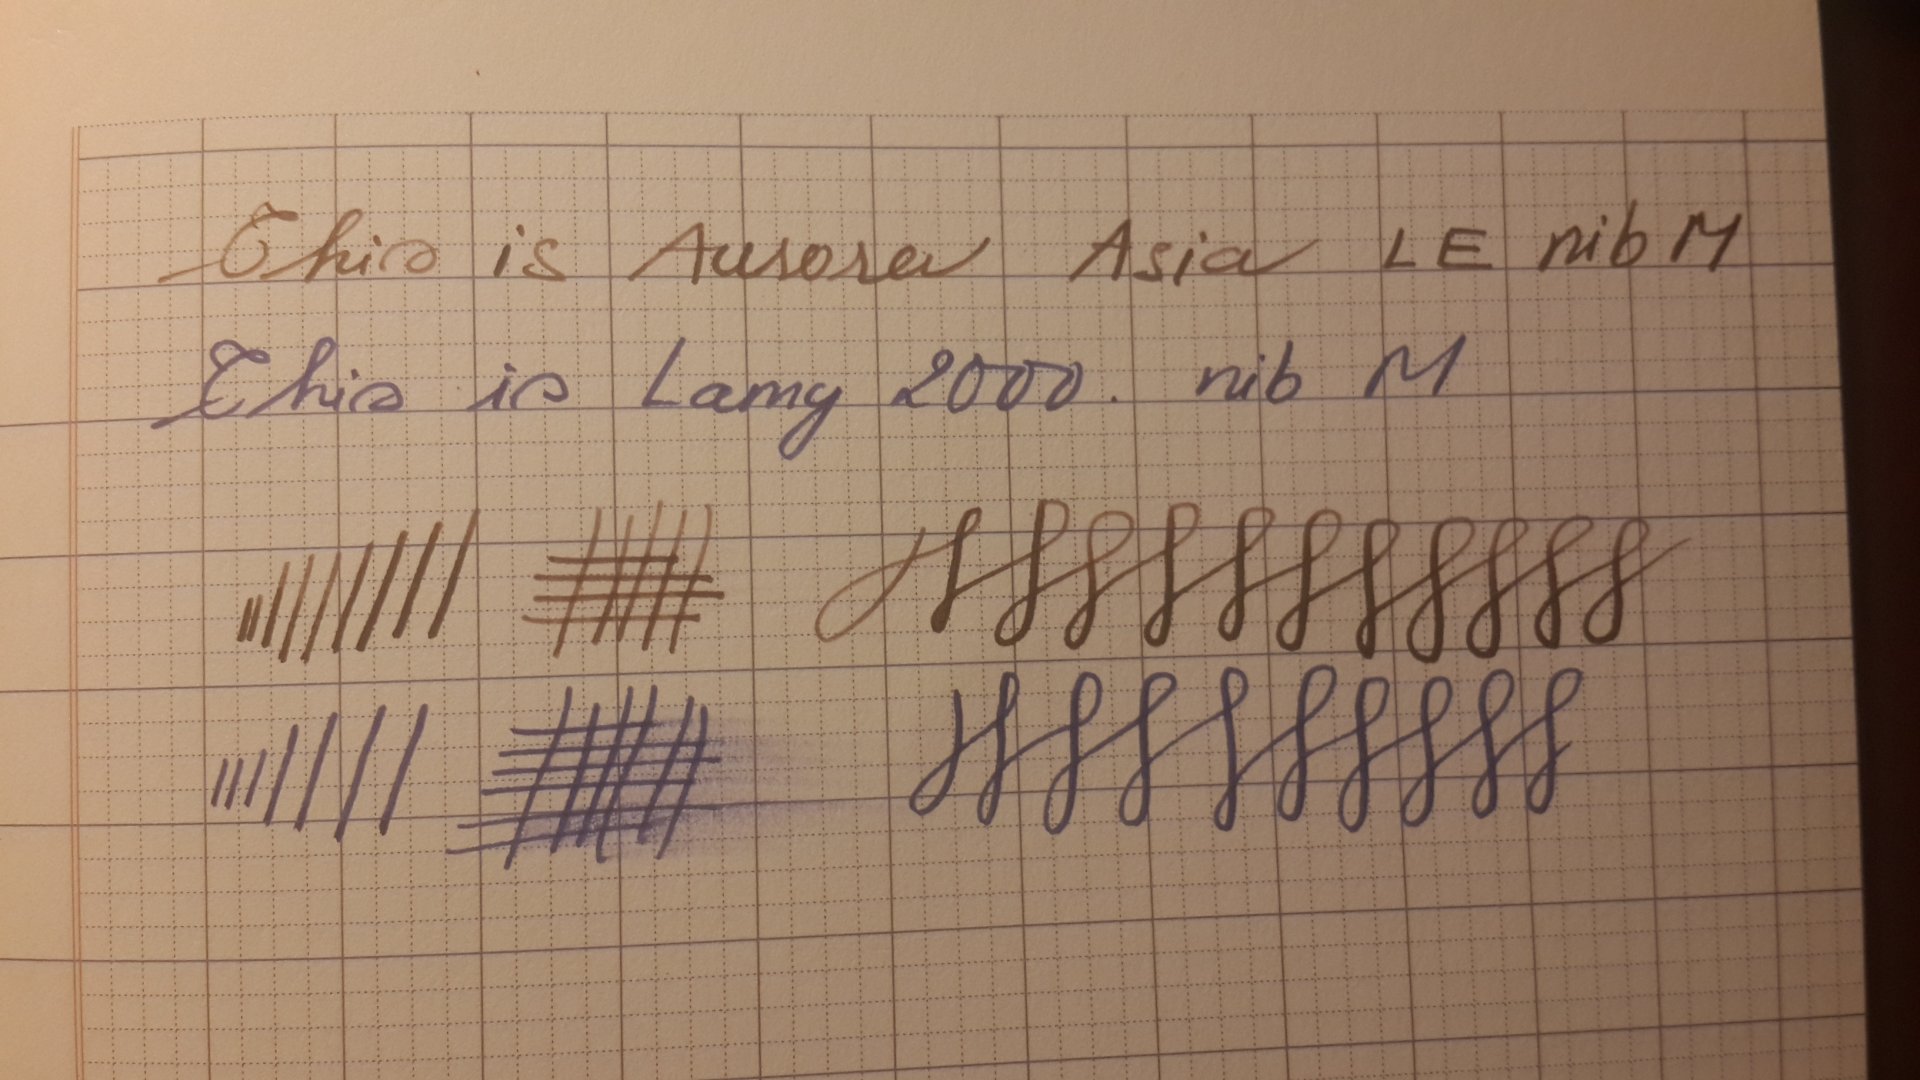 This is Aurora Asia LE nib M
This is Lamy 2000. nib M